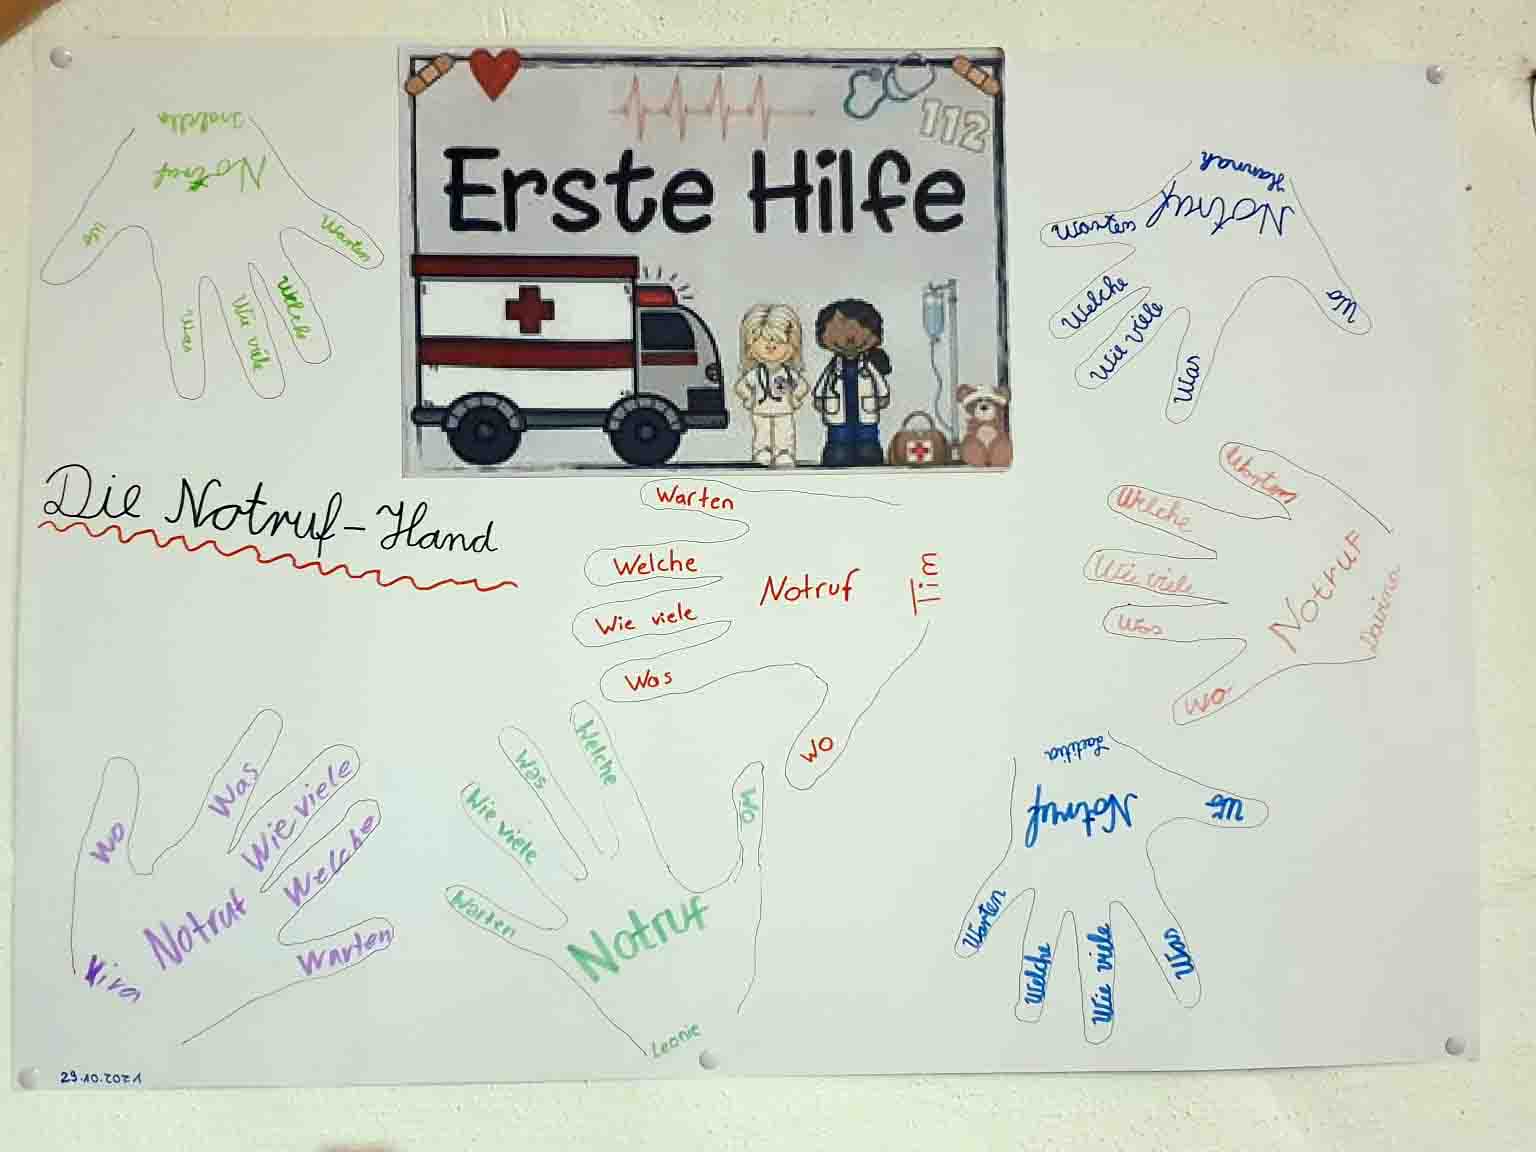 112
Erste Hilfe
Die Notruf-Hand
Notruf
Wo
Was
Wie viele
Welche
Warten
Hannah
Notruf
Warten
Welche
Wie viele
Was
Wo
Warten
Welche
Wie viele
Was
Wo
Notruf
Warten
Welche
Wie viele
Was
Wo
Notruf
Wo
Was
Wie viele
Welche
Warten
Notruf
Kira
Welche
Was
Wie viele
Warten
Wo
Notruf
Leonie
Laetitia
Notruf
Wo
Warten
Welche
Wie viele
Was
29.10.2021